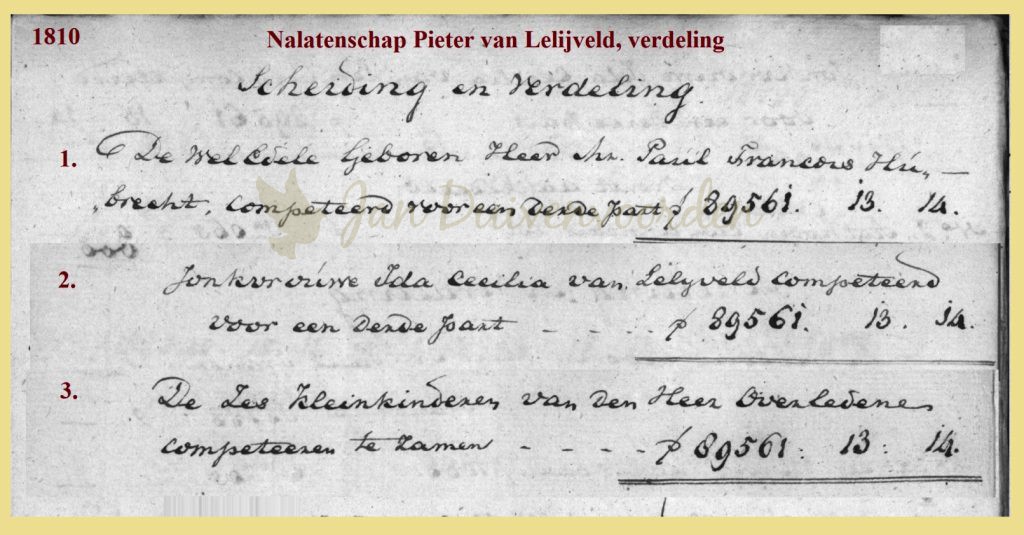 1810
Nalatenschap Pieter van Lelijveld, verdeling
Scheiding en Verdeling.
1. De Wel Edele Geboren Heer Mr. Paul Francois Hu„ —
„brecht, Competeerd voor een derde part ƒ 89561. 13. 14.
Jan Duivenvoorden
2. Jonkvrouwe Ida Cecilia van Lelyveld Competeerd
voor een derde part - - - - ƒ 89561. 13. 14.
3. De Zes Kleinkinderen van den Heer Overledene
Competeeren te zamen - - - - ƒ 89561. 13. 14.